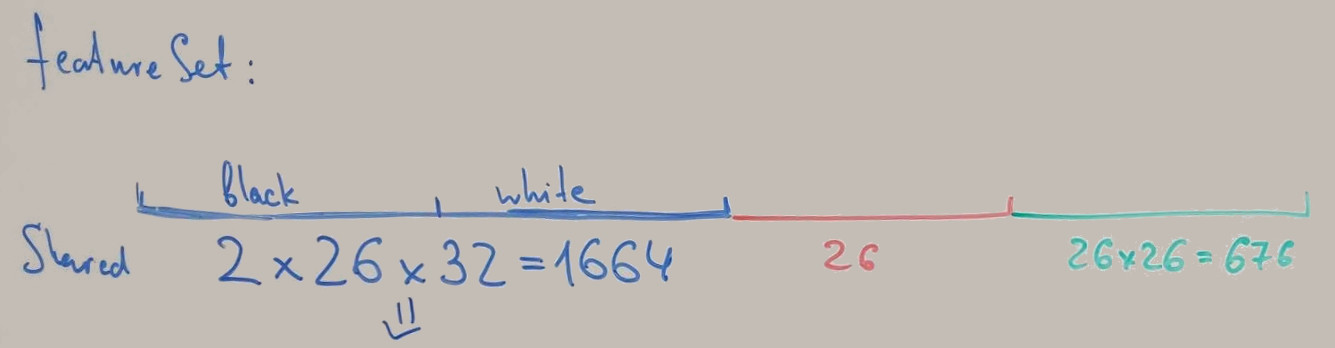 featureSet:
black white
Shared 2 x 26 x 32 = 1664 26 26x26 = 676